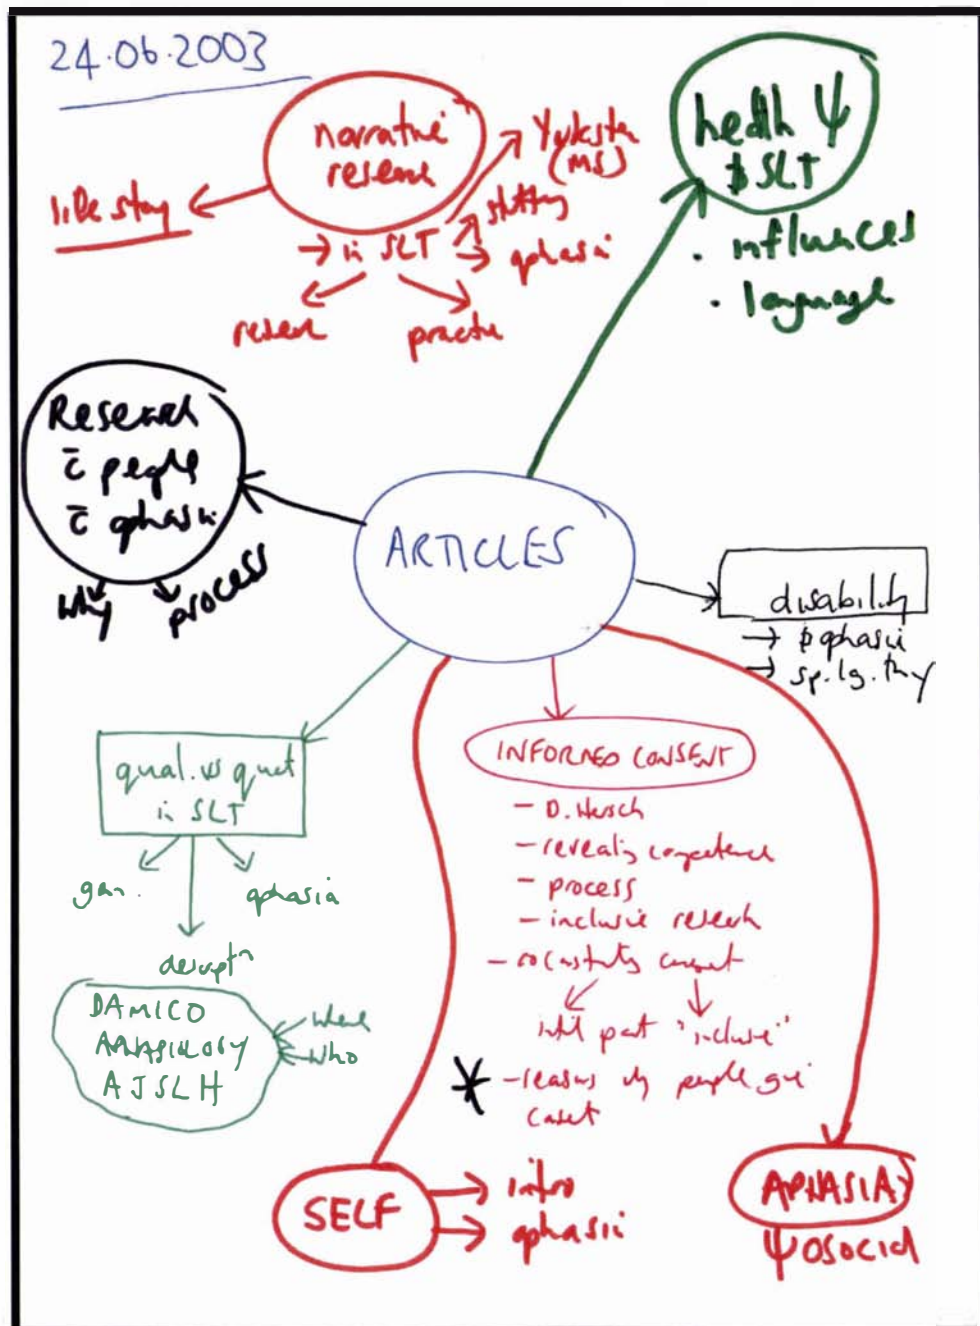 24.06.2003
narrative
research
life story
→ in SLT
→ aphasia
(MS)
research
practice
health Ψ
& SLT
. influences
. language
Research
c̄ people
c̄ aphasia
why
process
ARTICLES
disability
→ & aphasia
→ sp.lg.thy
qual. vs quat
in SLT
gen.
aphasia
descriptn
DAMICO
APHASIOLOGY
AJSLH
where
who
INFORMED CONSENT
- D. Hersch
- revealing competence
- process
- inclusive research
consent
part "inclusive"
- reasons why people give
consent
SELF
→ intro
→ aphasia
APHASIA
Ψosocial